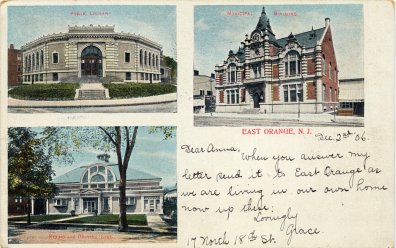 PUBLIC LIBRARY
MUNICIPAL BUILDING
EAST ORANGE, N. J.
Dec. 2nd 06.
Dear Anna,
When you answer my
letter send it to East Orange as
we are living in our own home
now up there.
Lovingly
Grace.
17 North 18th St.